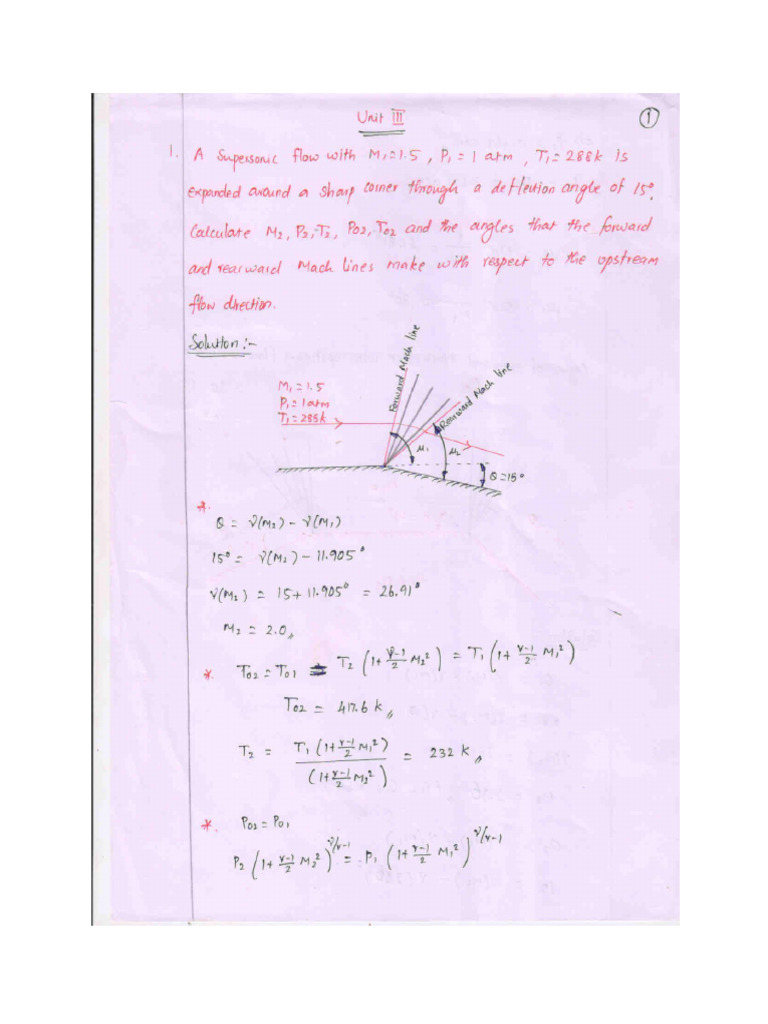 Unit III
1
1. A Supersonic flow with M₁=1.5, P₁=1 atm, T₁=288k is
expanded around a sharp corner through a deflection angle of 15°.
Calculate M₂, P₂, T₂, P₀₂, T₀₂ and the angles that the forward
and rearward Mach lines make with respect to the upstream
flow direction.
Solution:-
Forward Mach line
Rearward Mach line
M₁=1.5
P₁=1atm
T₁=288k
μ₁
μ₂
θ=15°
* θ = ν(M₂) - ν(M₁)
15° = ν(M₂) - 11.905°
ν(M₂) = 15 + 11.905° = 26.91°
M₂ = 2.0,,
* T₀₂ = T₀₁ = T₂ (1+ γ-1/2 M₂²) = T₁ (1+ γ-1/2 M₁²)
T₀₂ = 417.6 k,,
T₂ = T₁ (1+ γ-1/2 M₁²) / (1+ γ-1/2 M₂²) = 232 k,,
* P₀₂ = P₀₁
P₂ (1+ γ-1/2 M₂²)^γ/γ-1 = P₁ (1+ γ-1/2 M₁²)^γ/γ-1